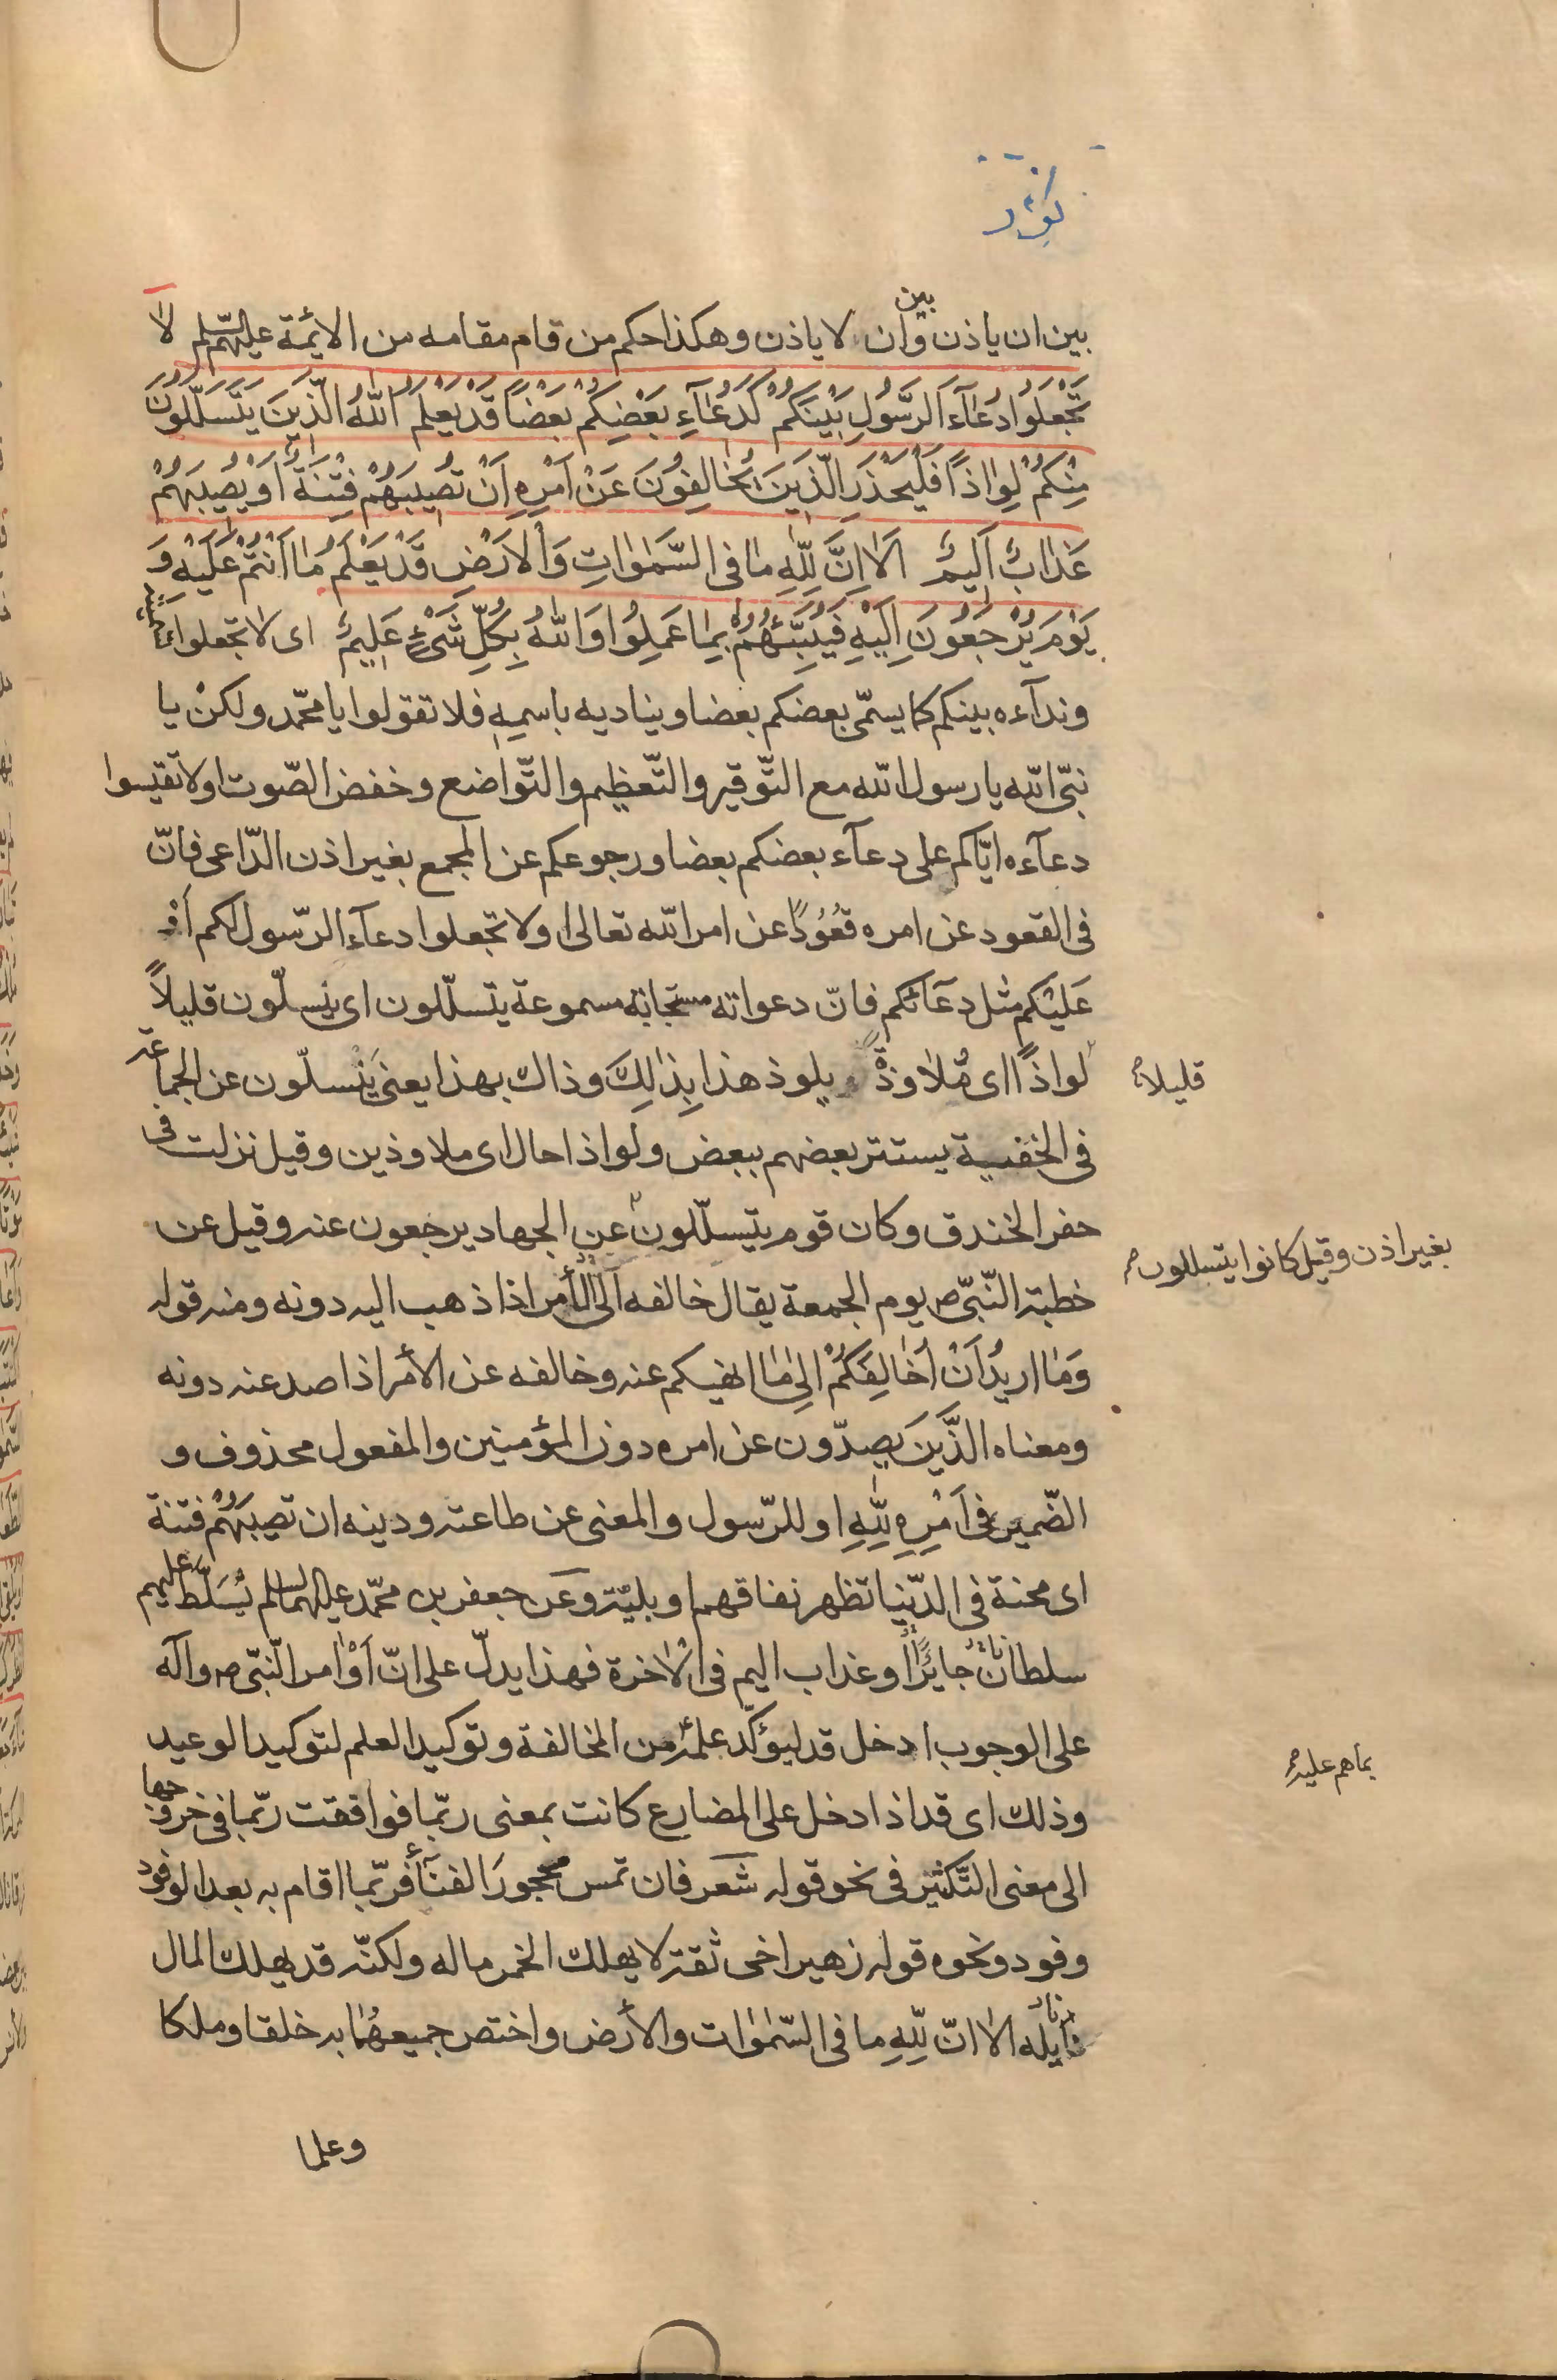 بين ان ياذن وبين ان لا ياذن وهكذا حكم من قام مقامه من الايمّة عليهم السّلم لا
تَجْعَلوُا دُعٰآءَ الرَّسُولِ بَيْنَكُمْ كَدُعٰآءِ بَعْضِكُمْ بَعْضاً قَدْ يَعْلَمُ اللّٰهُ الَّذينَ يَتَسَلَّلُونَ
مِنْكُمْ لِوٰاذاً فَلْيَحْذَرِ الَّذينَ يُخٰالِفُونَ عَنْ اَمْرِهِ اَنْ تُصيبَهُمْ فِتْنَةٌ اَوْ يُصيبَهُمْ
عَذٰابٌ اَليمٌ اَلاٰ اِنَّ لِلّٰهِ مٰا فى السَّمٰوٰاتِ وَالْاَرْضِ قَدْ يَعْلَمُ مٰا اَنْتُمْ عَلَيْهِ وَ
يَوْمَ يُرْجَعُونَ اِلَيْهِ فَيُنَبِّئُهُمْ بِمٰا عَمِلُوا وَاللّٰهُ بِكُلِّ شَىْءٍ عَليمٌ اى لا تجعلوا تسميته
وندآءه بينكم كما يسمّى بعضكم بعضا ويناديه باسمِهِ فلا تقولوا يا محمّد ولكنْ يا
نبىّ اللّه يا رسول اللّه مع التّوقير والتّعظيم والتّواضع وخفض الصّوت او لا تقيسوا
دعآءه ايّاكم على دعآء بعضكم بعضا ورجوعكم عن المجمع بغير اذن الدّاعى فانّ
فى القعود عن امره قعُوُداً عن امر اللّه تعالى او لا تجعلوا دعآء الرّسول لكم اَوْ
عَلَيْكم مثل دعآئكم فانّ دعواته مستجابة مسموعة يتسلّلون اى ينسلّون قليلاً
قليلا
لواذاً اى مُلاٰوذةً يلوذ هذا بِذٰلِكَ وذاك بهذا يعنى يَنْسلّون عن الجماعة
فى الخفية يستتر بعضهم ببعض ولواذا حال اى ملاوذين وقيل نزلت فى
حفر الخندق وكان قوم يتسلّلون عن الجهاد يرجعون عنه وقيل عن
بغير اذن وقيل كانوا يتسللون
خطبة النّبىّ ص يوم الجمعة يقال خالفه الى الأمر اذا ذهب اليه دونه ومنه قوله
وَمٰا اريدُ اَنْ اُخٰالِفَكُمْ اِلىٰ مٰا انهيكم عنه وخالفه عن الأمر اذا صد عنه دونه
ومعناه الَّذينَ يَصِدّون عن امره دون المؤمنين والمفعول محذوف و
الضّمير فى اَمْرِهِ لِلّٰهِ او للرّسول والمعنى عن طاعته ودينه ان تصيبَهُمْ فتنة
اى محنة فى الدّنيا تظهر نفاقهم او بليّة وعَن جعفر بن محمّد عليهما السلم يُسَلَّط عليهم
سلطان جايرٌ او عذاب اليم فى الْاٰخرة فهذا يدلّ على انّ اَوْامر النّبىّ ص وآله
على الوجوب ادخل قد ليؤكّد علمه من المخالفة وتوكيد العلم لتوكيد الوعيد
بما هم عليه
وذلك اى قد اذا دخل على المضارع كانت بمعنى ربّما فوافقت ربّما فى خروجها
الى معنى التّكثير فى نحو قوله شعر فان تمس مهجور الفنآء فربّما اقام به بعد الوفود
وفود ونحوه قوله زهير اخى ثقة لا يهلك الخمر ماله ولكنّه قد يهلك المال
نايله الا انّ لِلّٰهِ ما فى السّمٰوٰات والأرض واختص جميعهُمٰا به خلقا وملكا
وعلما